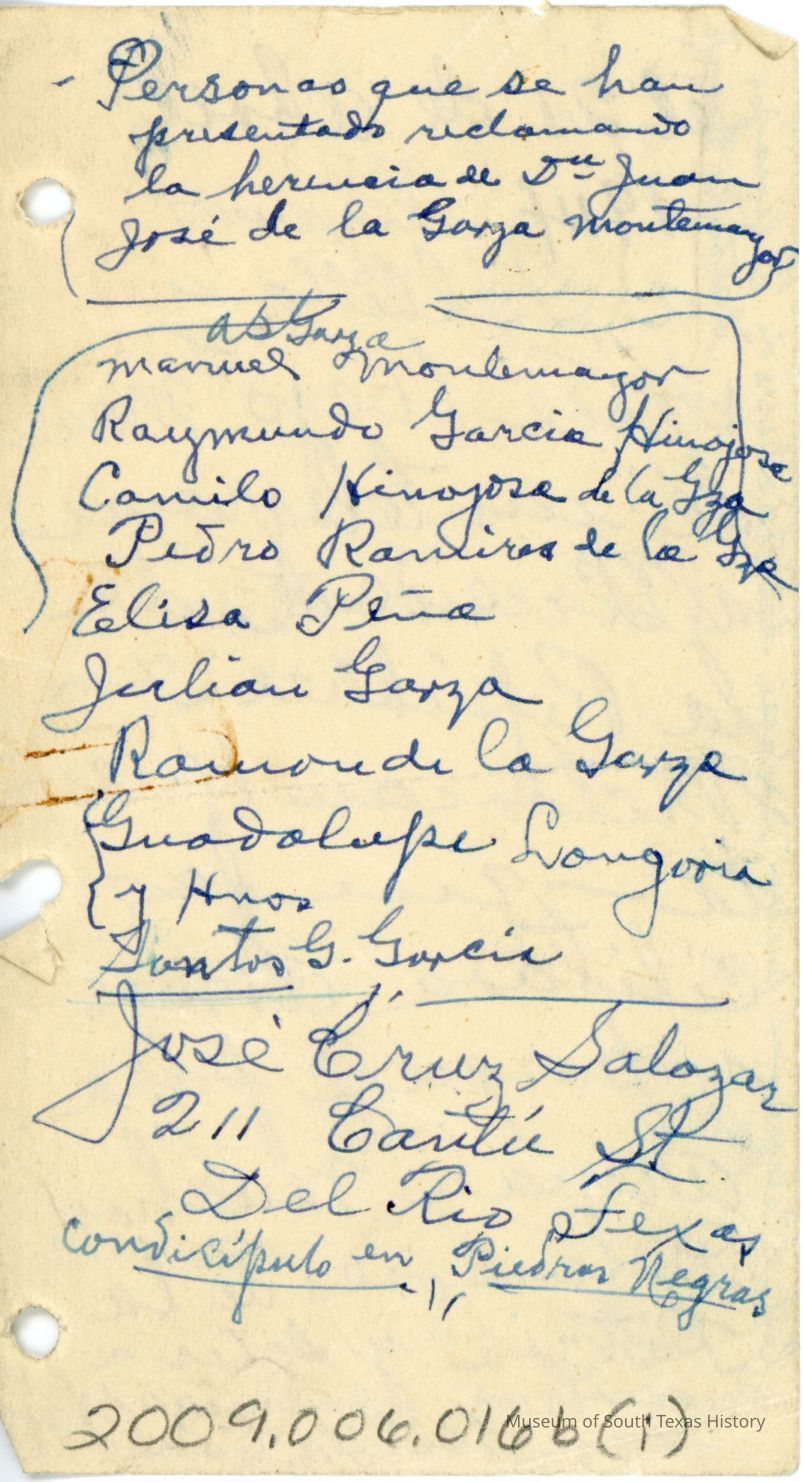 - Personas que se han
presentado reclamando
la herencia de Dn Juan
José de la Garza Montemayor
Garza
Manuel Montemayor
Raymundo Garcia Hinojosa
Camilo Hinojosa de la Gza
Pedro Ramires de la Gza
Elisa Peña
Julian Garza
Ramon de la Garza
Guadalupe Longoria
y Hnos
Santos G. Garcia
José Cruz Salazar
211 Cantú St
Del Rio, Texas
Condicípulo en Piedras Negras
2009.006.016b(1)
Museum of South Texas History